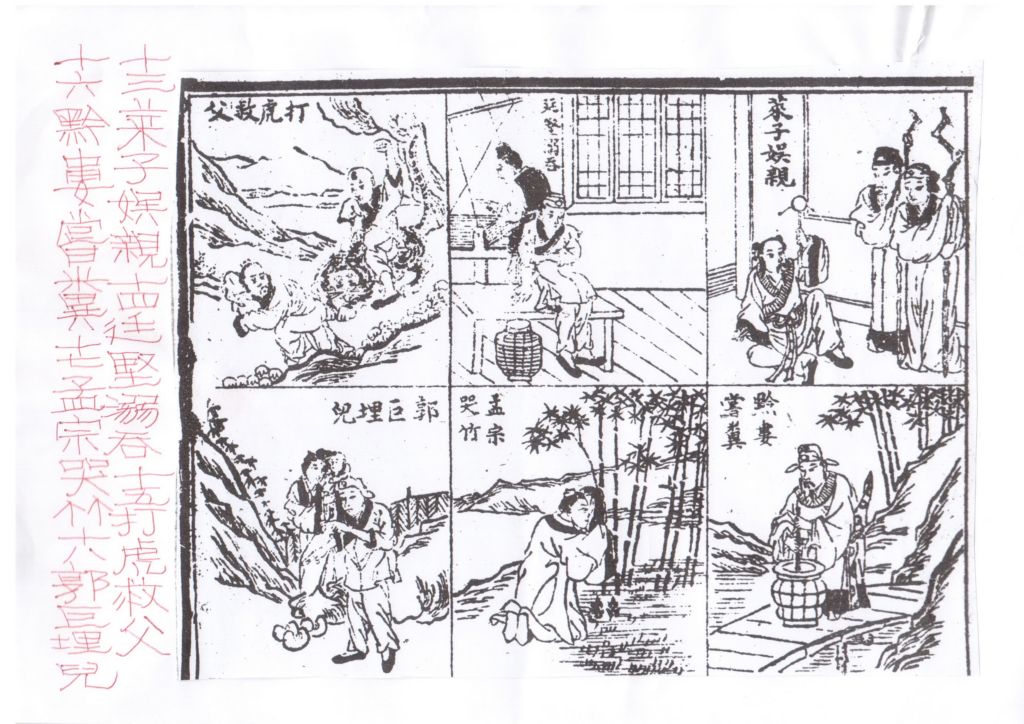 萊子娛親
廷堅溺吞
打虎救父
黔婁
嘗糞
孟宗
哭竹
郭巨埋兒
十三萊子娛親十四廷堅溺吞十五打虎救父
十六黔婁嘗糞十七孟宗哭竹十八郭巨埋兒